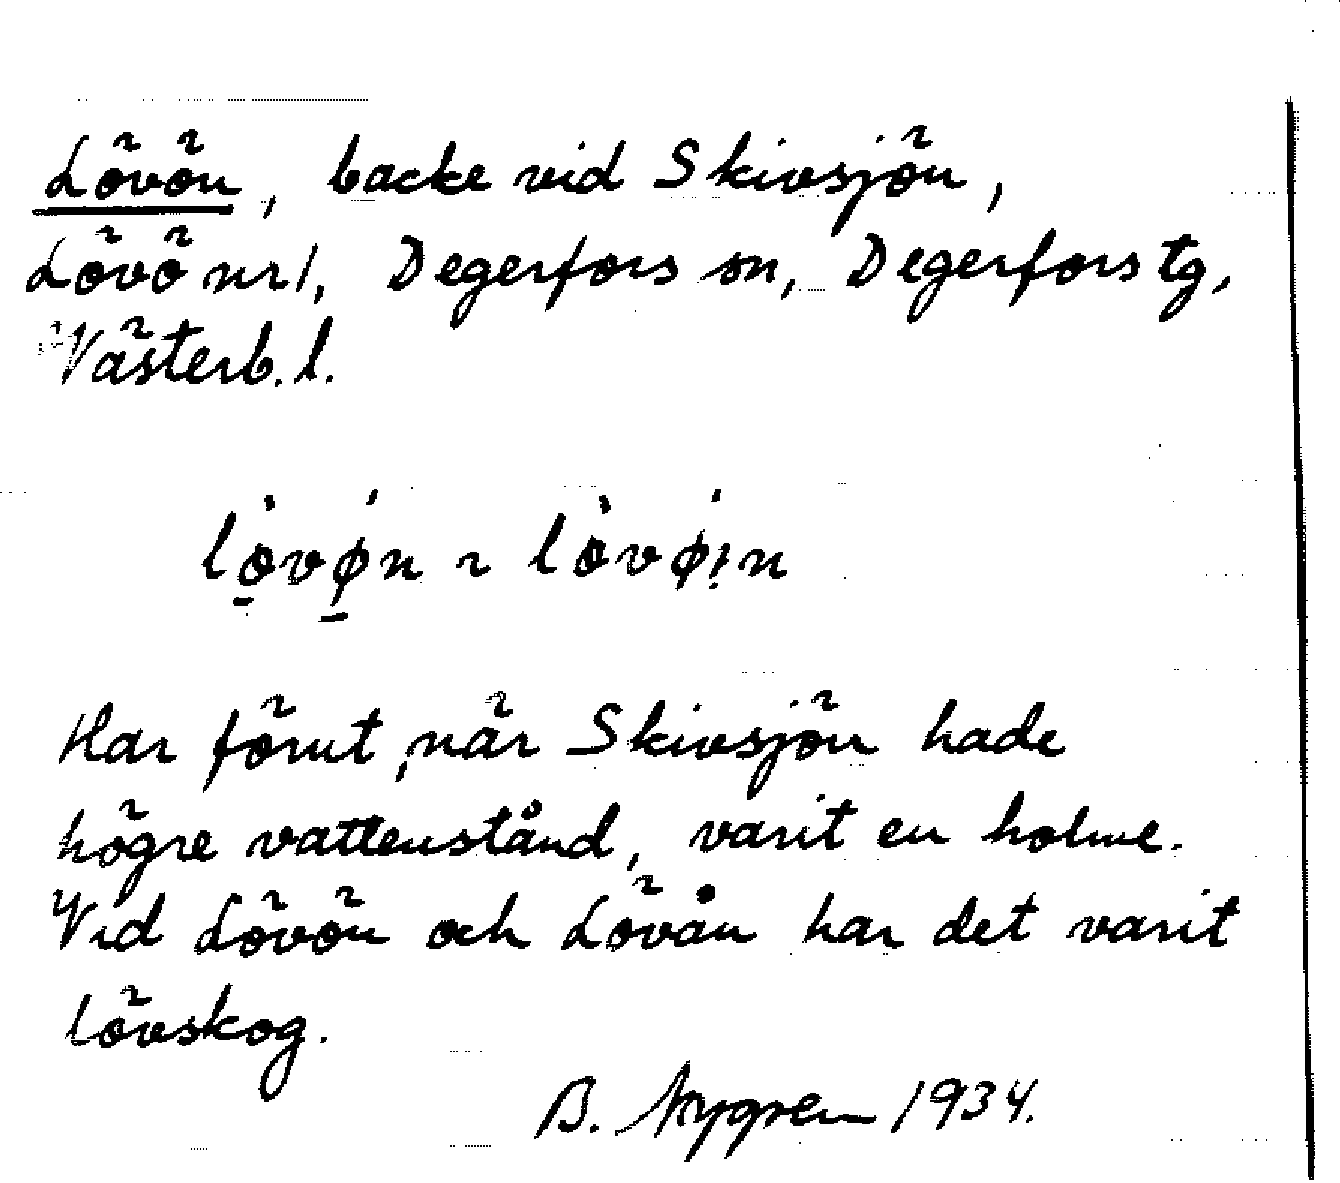 Lövön, backe vid Skivsjön,
Lövö nr 1, Degerfors sn, Degerfors tg,
Västerb. l.
lòvǿn ~ lòvǿ:n
Har förut, när Skivsjön hade
högre vattenstånd, varit en holme.
Vid Lövön och Lövån har det varit
lövskog.
B. Nygren 1934.